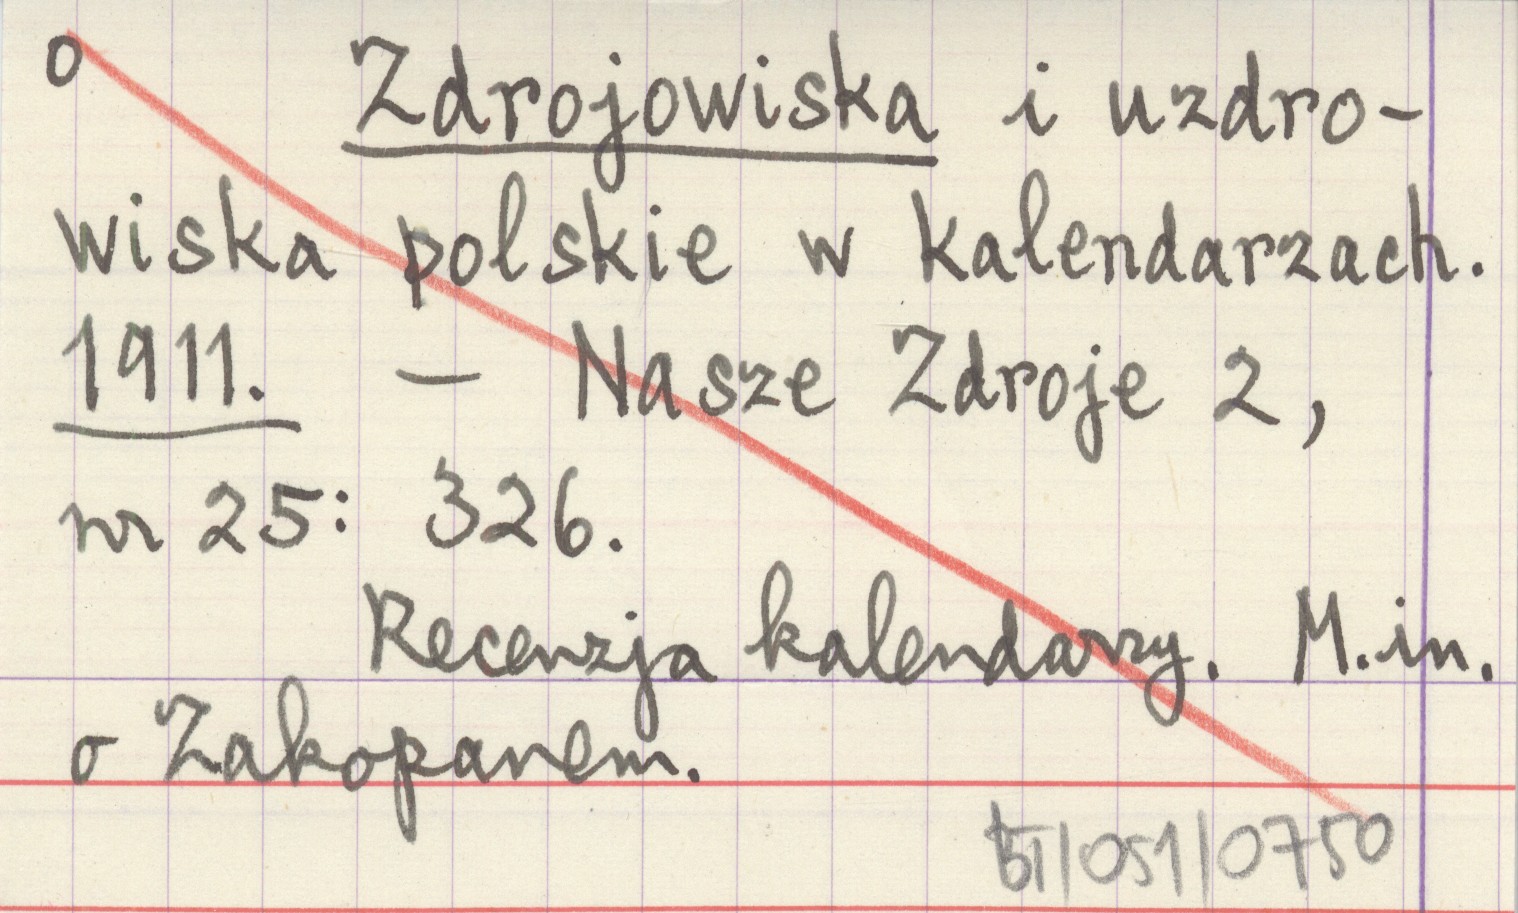 o Zdrojowiska i uzdro-
wiska polskie w kalendarzach.
1911. — Nasze Zdroje 2,
nr 25: 326.
Recenzja kalendarzy. M.in.
o Zakopanem.
BI/051/0750